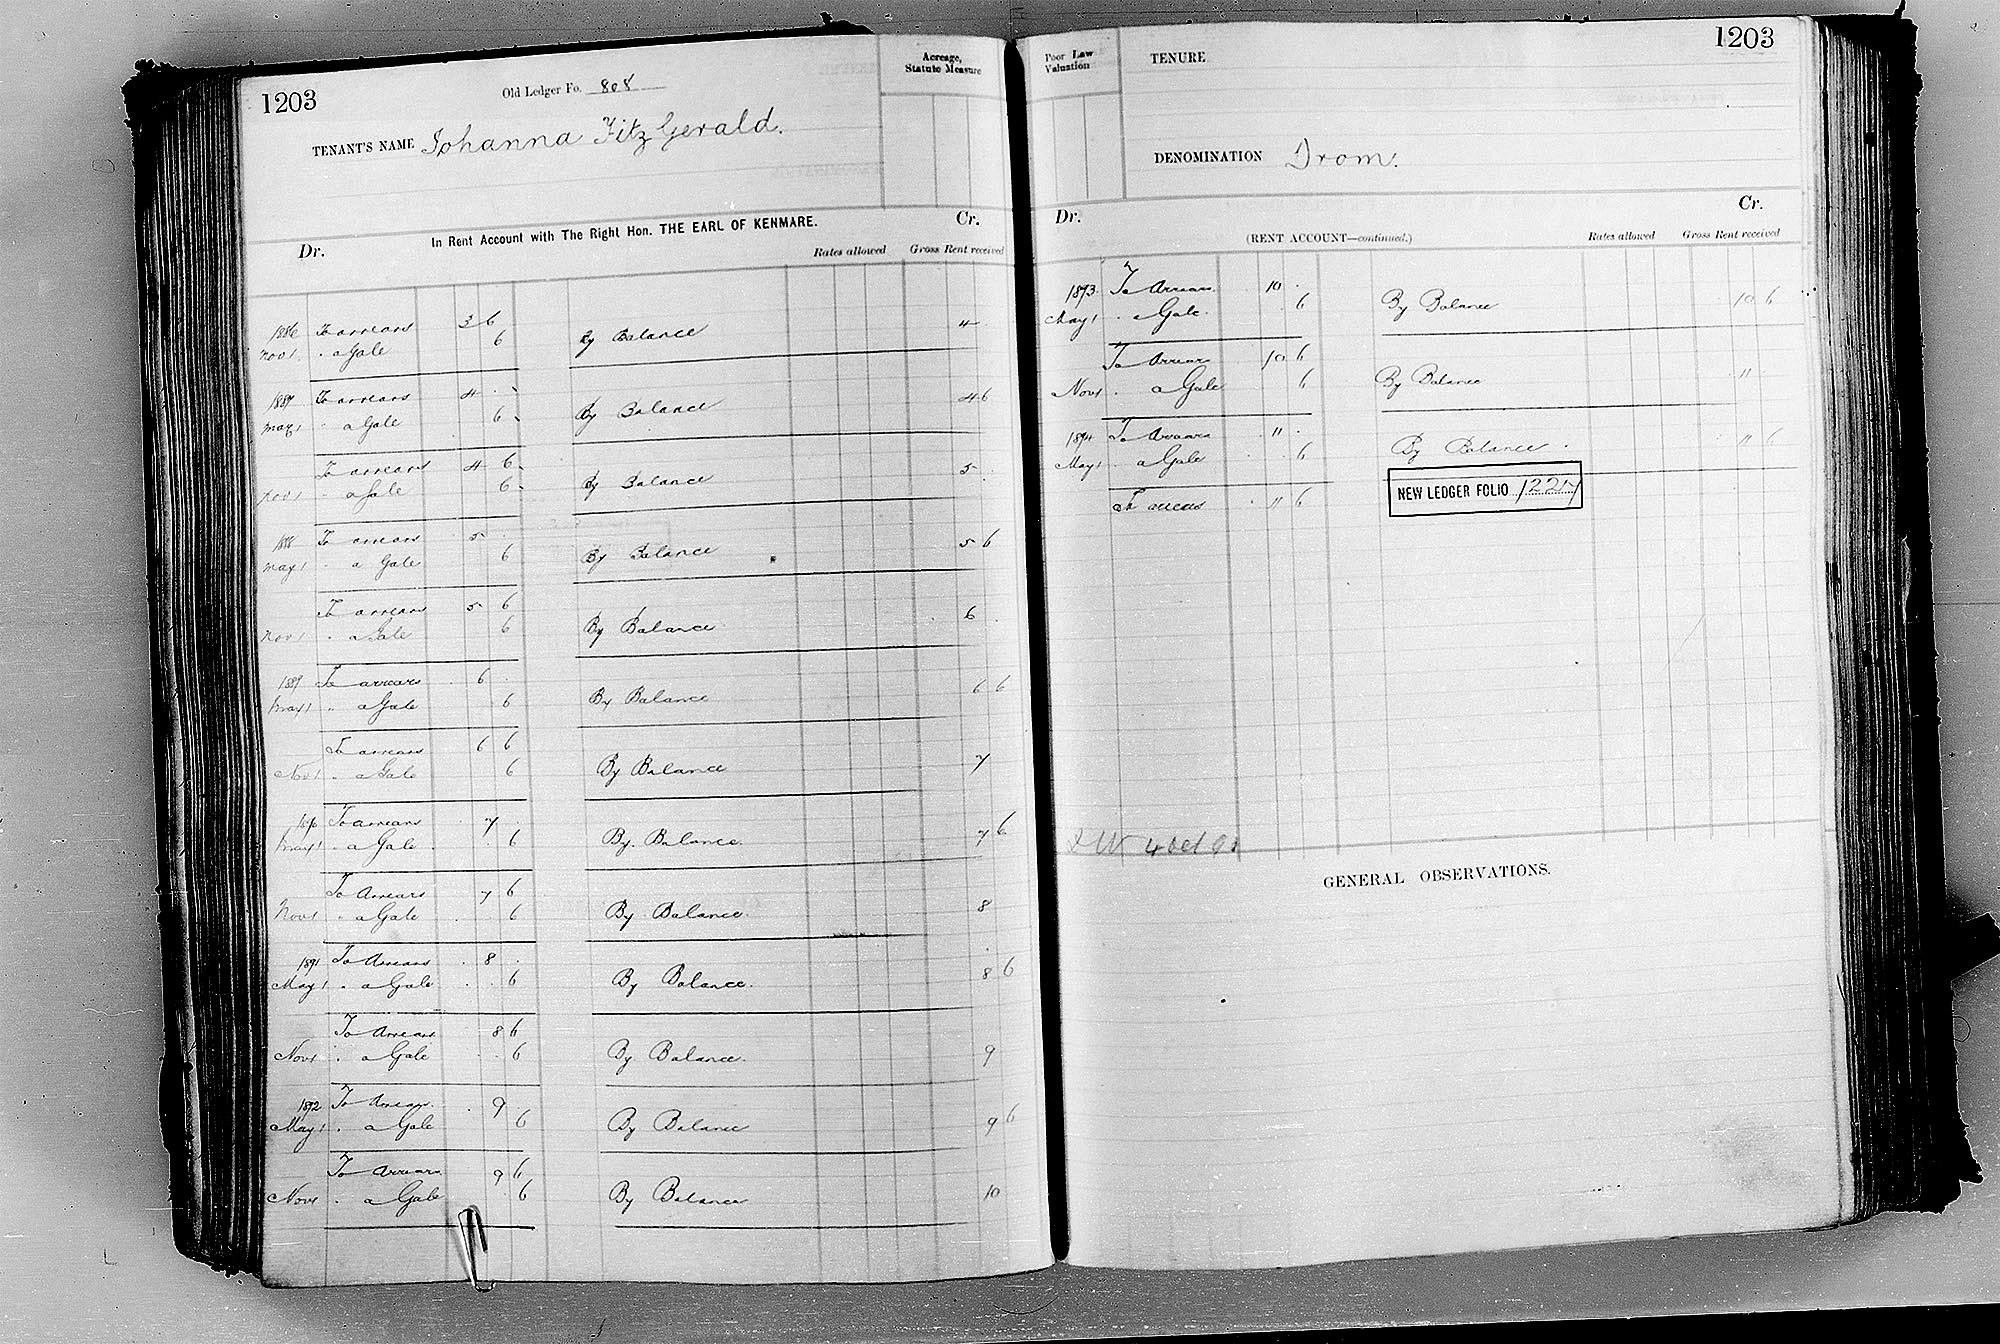 1203
Old Ledger Fo. 808
Acreage, Statute Measure
TENANT'S NAME Johanna FitzGerald.
In Rent Account with The Right Hon. THE EARL OF KENMARE.
Dr. Cr.
Rates allowed Gross Rent received
1886 To arrears 3 6
Nov 1 " a Gale 6 By Balance 4
1887 To arrears 4
May 1 " a Gale 6 By Balance 4 6
To arrears 4 6
Nov 1 " a Gale 6 By Balance 5
1888 To arrears 5
May 1 " a Gale 6 By Balance 5 6
To arrears 5 6
Nov 1 " a Gale 6 By Balance 6
1889 To arrears 6
May 1 " a Gale 6 By Balance 6 6
To arrears 6 6
Nov 1 " a Gale 6 By Balance 7
1890 To arrears 7
May 1 " a Gale 6 By Balance. 7 6
To Arrears 7 6
Nov 1 " a Gale 6 By Balance. 8
1891 To Arrears 8
May 1 " a Gale 6 By Balance. 8 6
To Arrears 8 6
Nov 1 " a Gale 6 By Balance. 9
1892 To Arrears 9
May 1 " a Gale 6 By Balance 9 6
To Arrears 9 6
Nov 1 " a Gale 6 By Balance 10
1203
Poor Law Valuation
TENURE
DENOMINATION Drom.
Dr. Cr.
(RENT ACCOUNT—continued.)
Rates allowed Gross Rent received
1893 To Arrears 10
May 1 " a Gale. 6 By Balance 10 6
To Arrears 10 6
Nov 1 " a Gale 6 By Balance 11
1894 To Arrears 11
May 1 " a Gale 6 By Balance 11 6
To arrears 11 6
NEW LEDGER FOLIO 1227
4 Oct
GENERAL OBSERVATIONS.